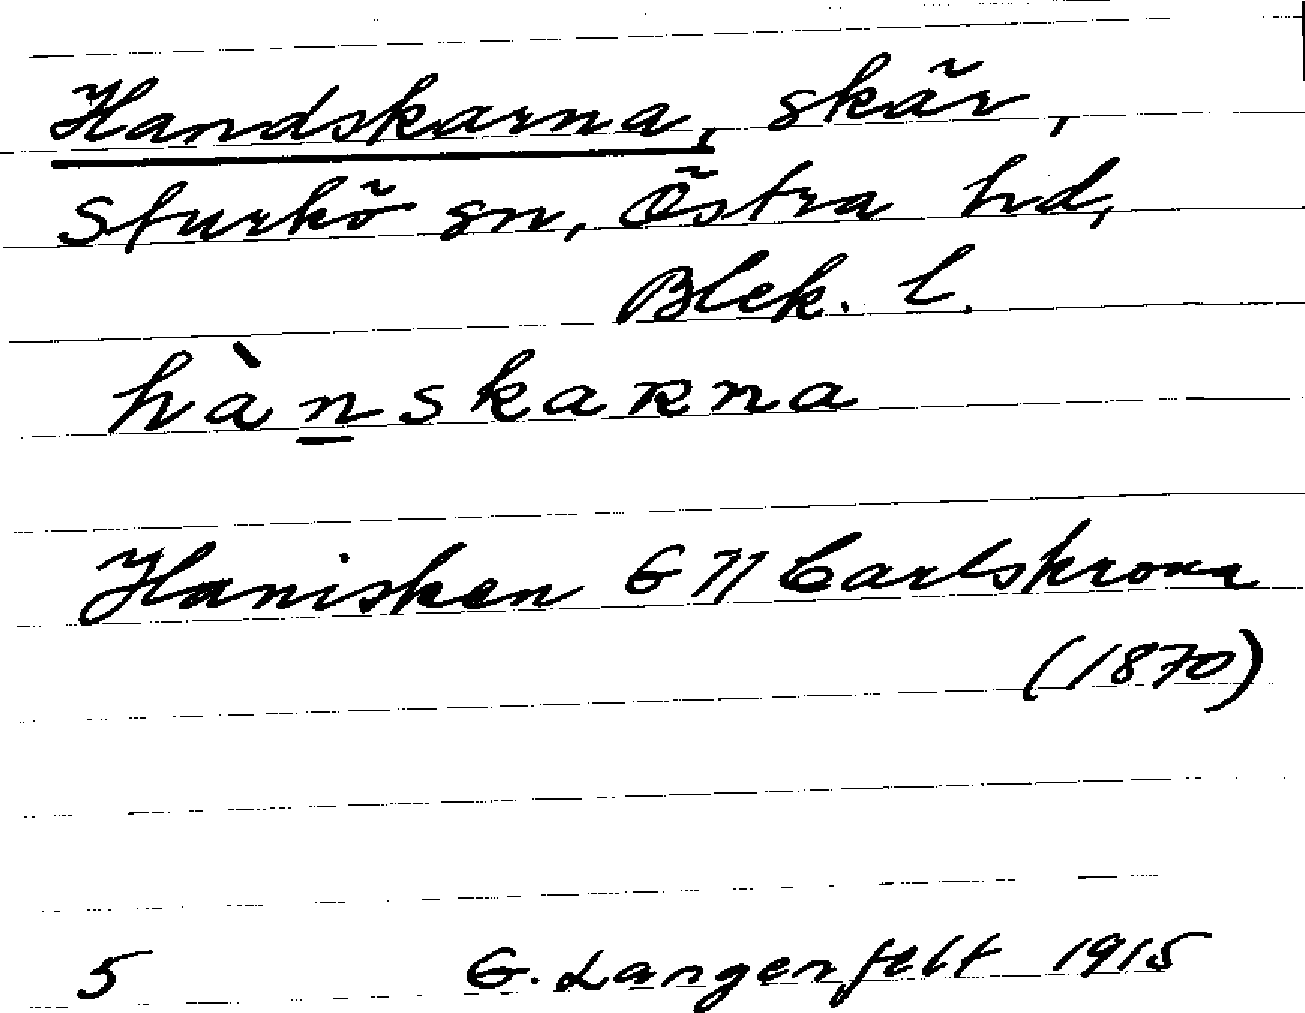 Handskarna, skär,
Sturkö sn, Östra hd,
Blek. l.
hànskaʀna
Hanisken G 71 Carlskrona
(1870)
5 G. Langenfelt 1915